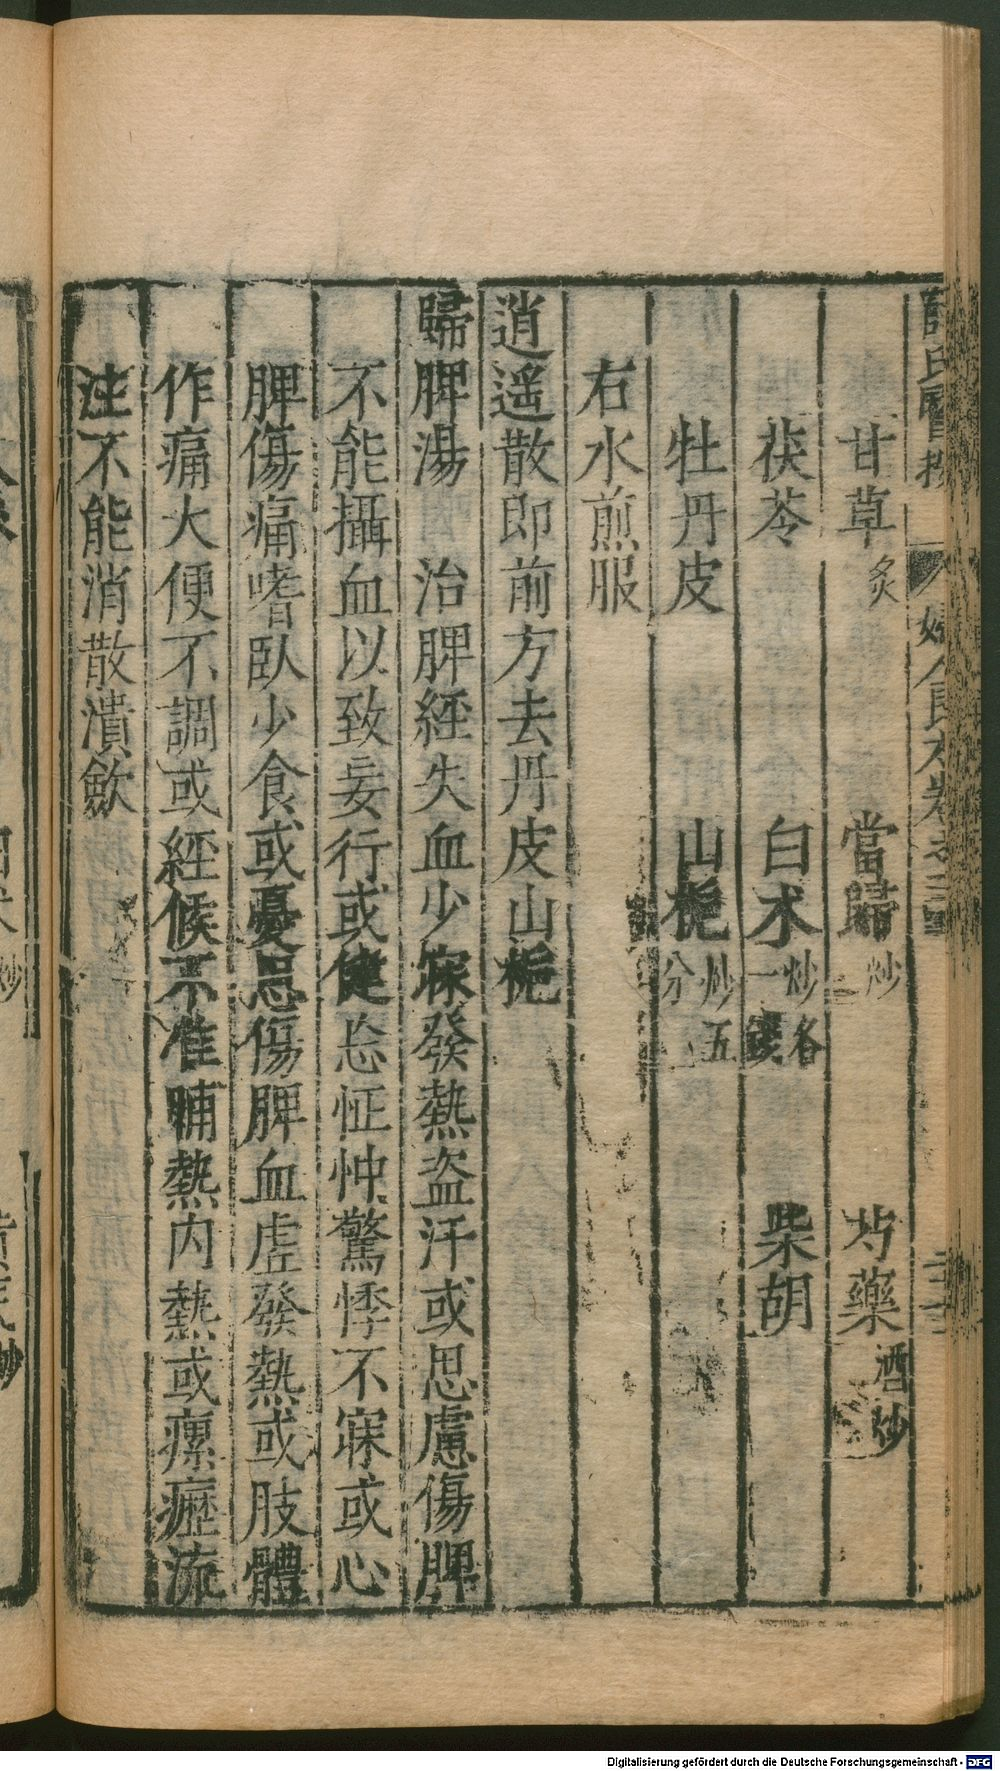 薛氏醫按 婦人良方卷之二十四
甘草炙 當歸炒 芍藥酒炒
茯苓 白朮炒各一錢 柴胡
牡丹皮 山梔炒五分
右水煎服
逍遙散即前方去丹皮山梔
歸脾湯 治脾經失血少寐發熱盜汗或思慮傷脾
不能攝血以致妄行或健忘怔忡驚悸不寐或心
脾傷痛嗜臥少食或憂思傷脾血虛發熱或肢體
作痛大便不調或經候不准晡熱內熱或瘰癧流
注不能消散潰斂
Digitalisierung gefördert durch die Deutsche Forschungsgemeinschaft - DFG